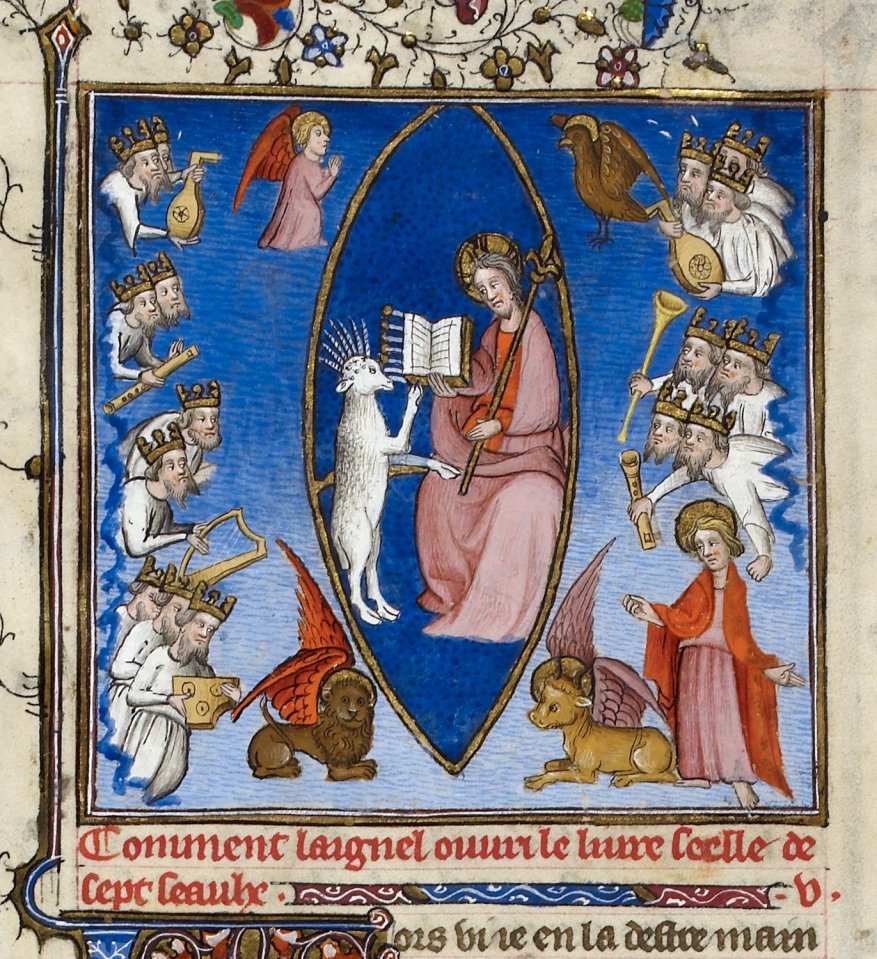 Comment laignel ouuri le liure seelle de
sept seaulx. v.
lors vi ie en la destre main